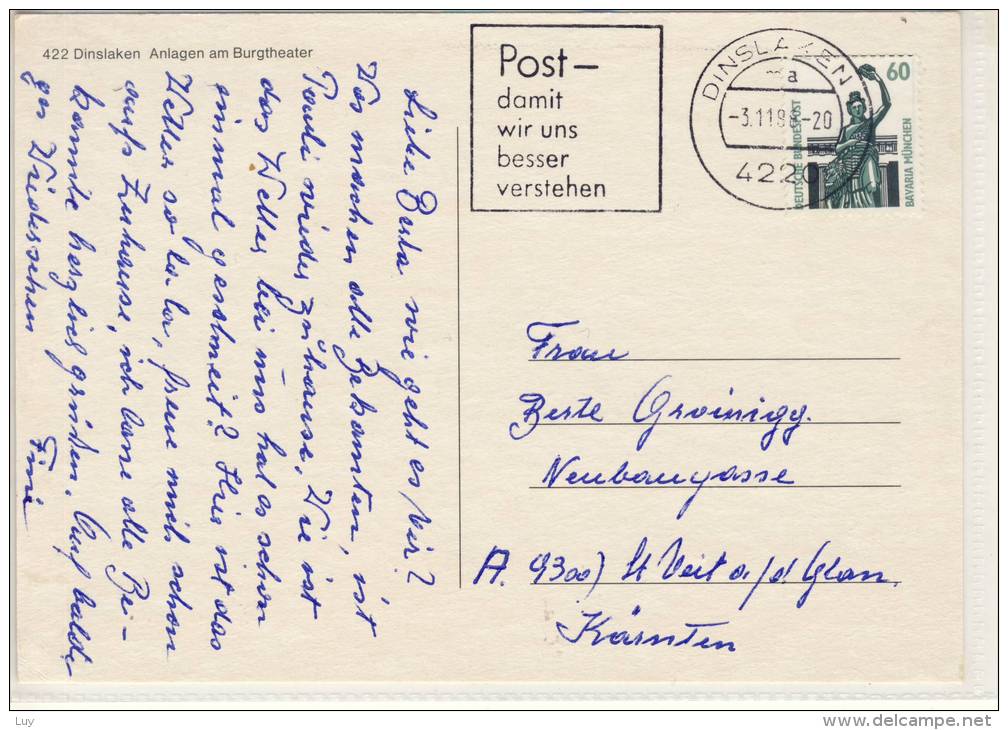 422 Dinslaken Anlagen am Burgtheater
Post—
damit
wir uns
besser
verstehen
DINSLAKEN
ma
-3.11.88-20
4220
60
DEUTSCHE BUNDESPOST
BAVARIA MÜNCHEN
Liebe Berta wie geht es Dir?
Was machen alle Bekannten, ist
Paula wieder zuhause, Wie ist
das Wetter bei uns hat es schon
einmal geschneit? Hier ist das
Wetter so la la, freue mich schon
aufs Zuhause, ich lasse alle Be-
kannte herzlich grüßen. Auf balde-
ges Wiedersehen
Fini
Frau
Berta Groinigg.
Neubaugasse
A. 9300) St Veit a/d. Glan.
Kärnten
Luy
www.delcampe.net